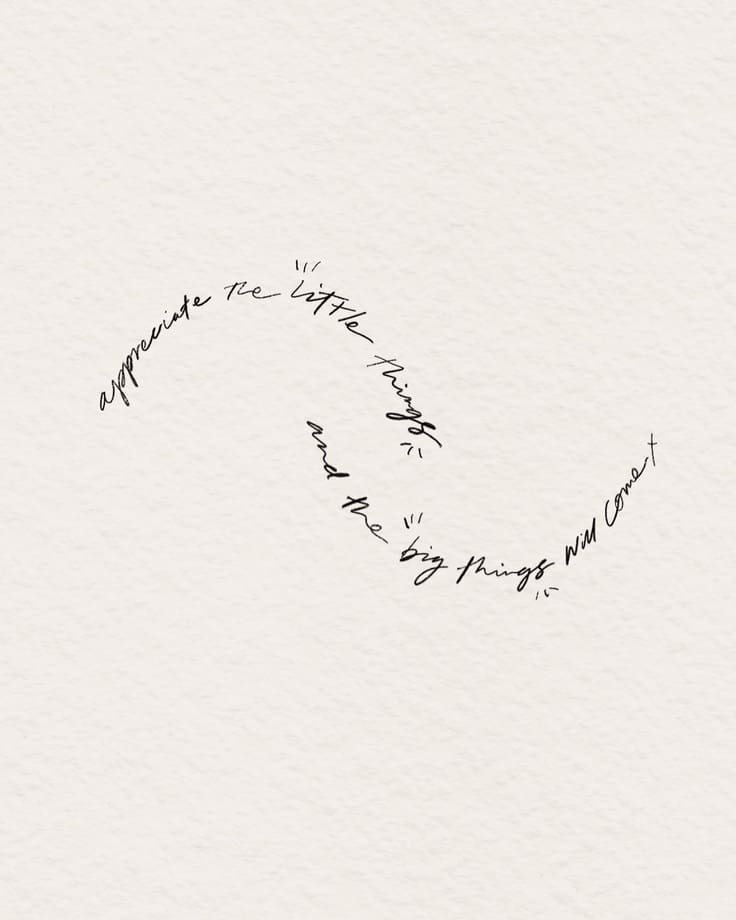 appreciate the little things
and the big things will come